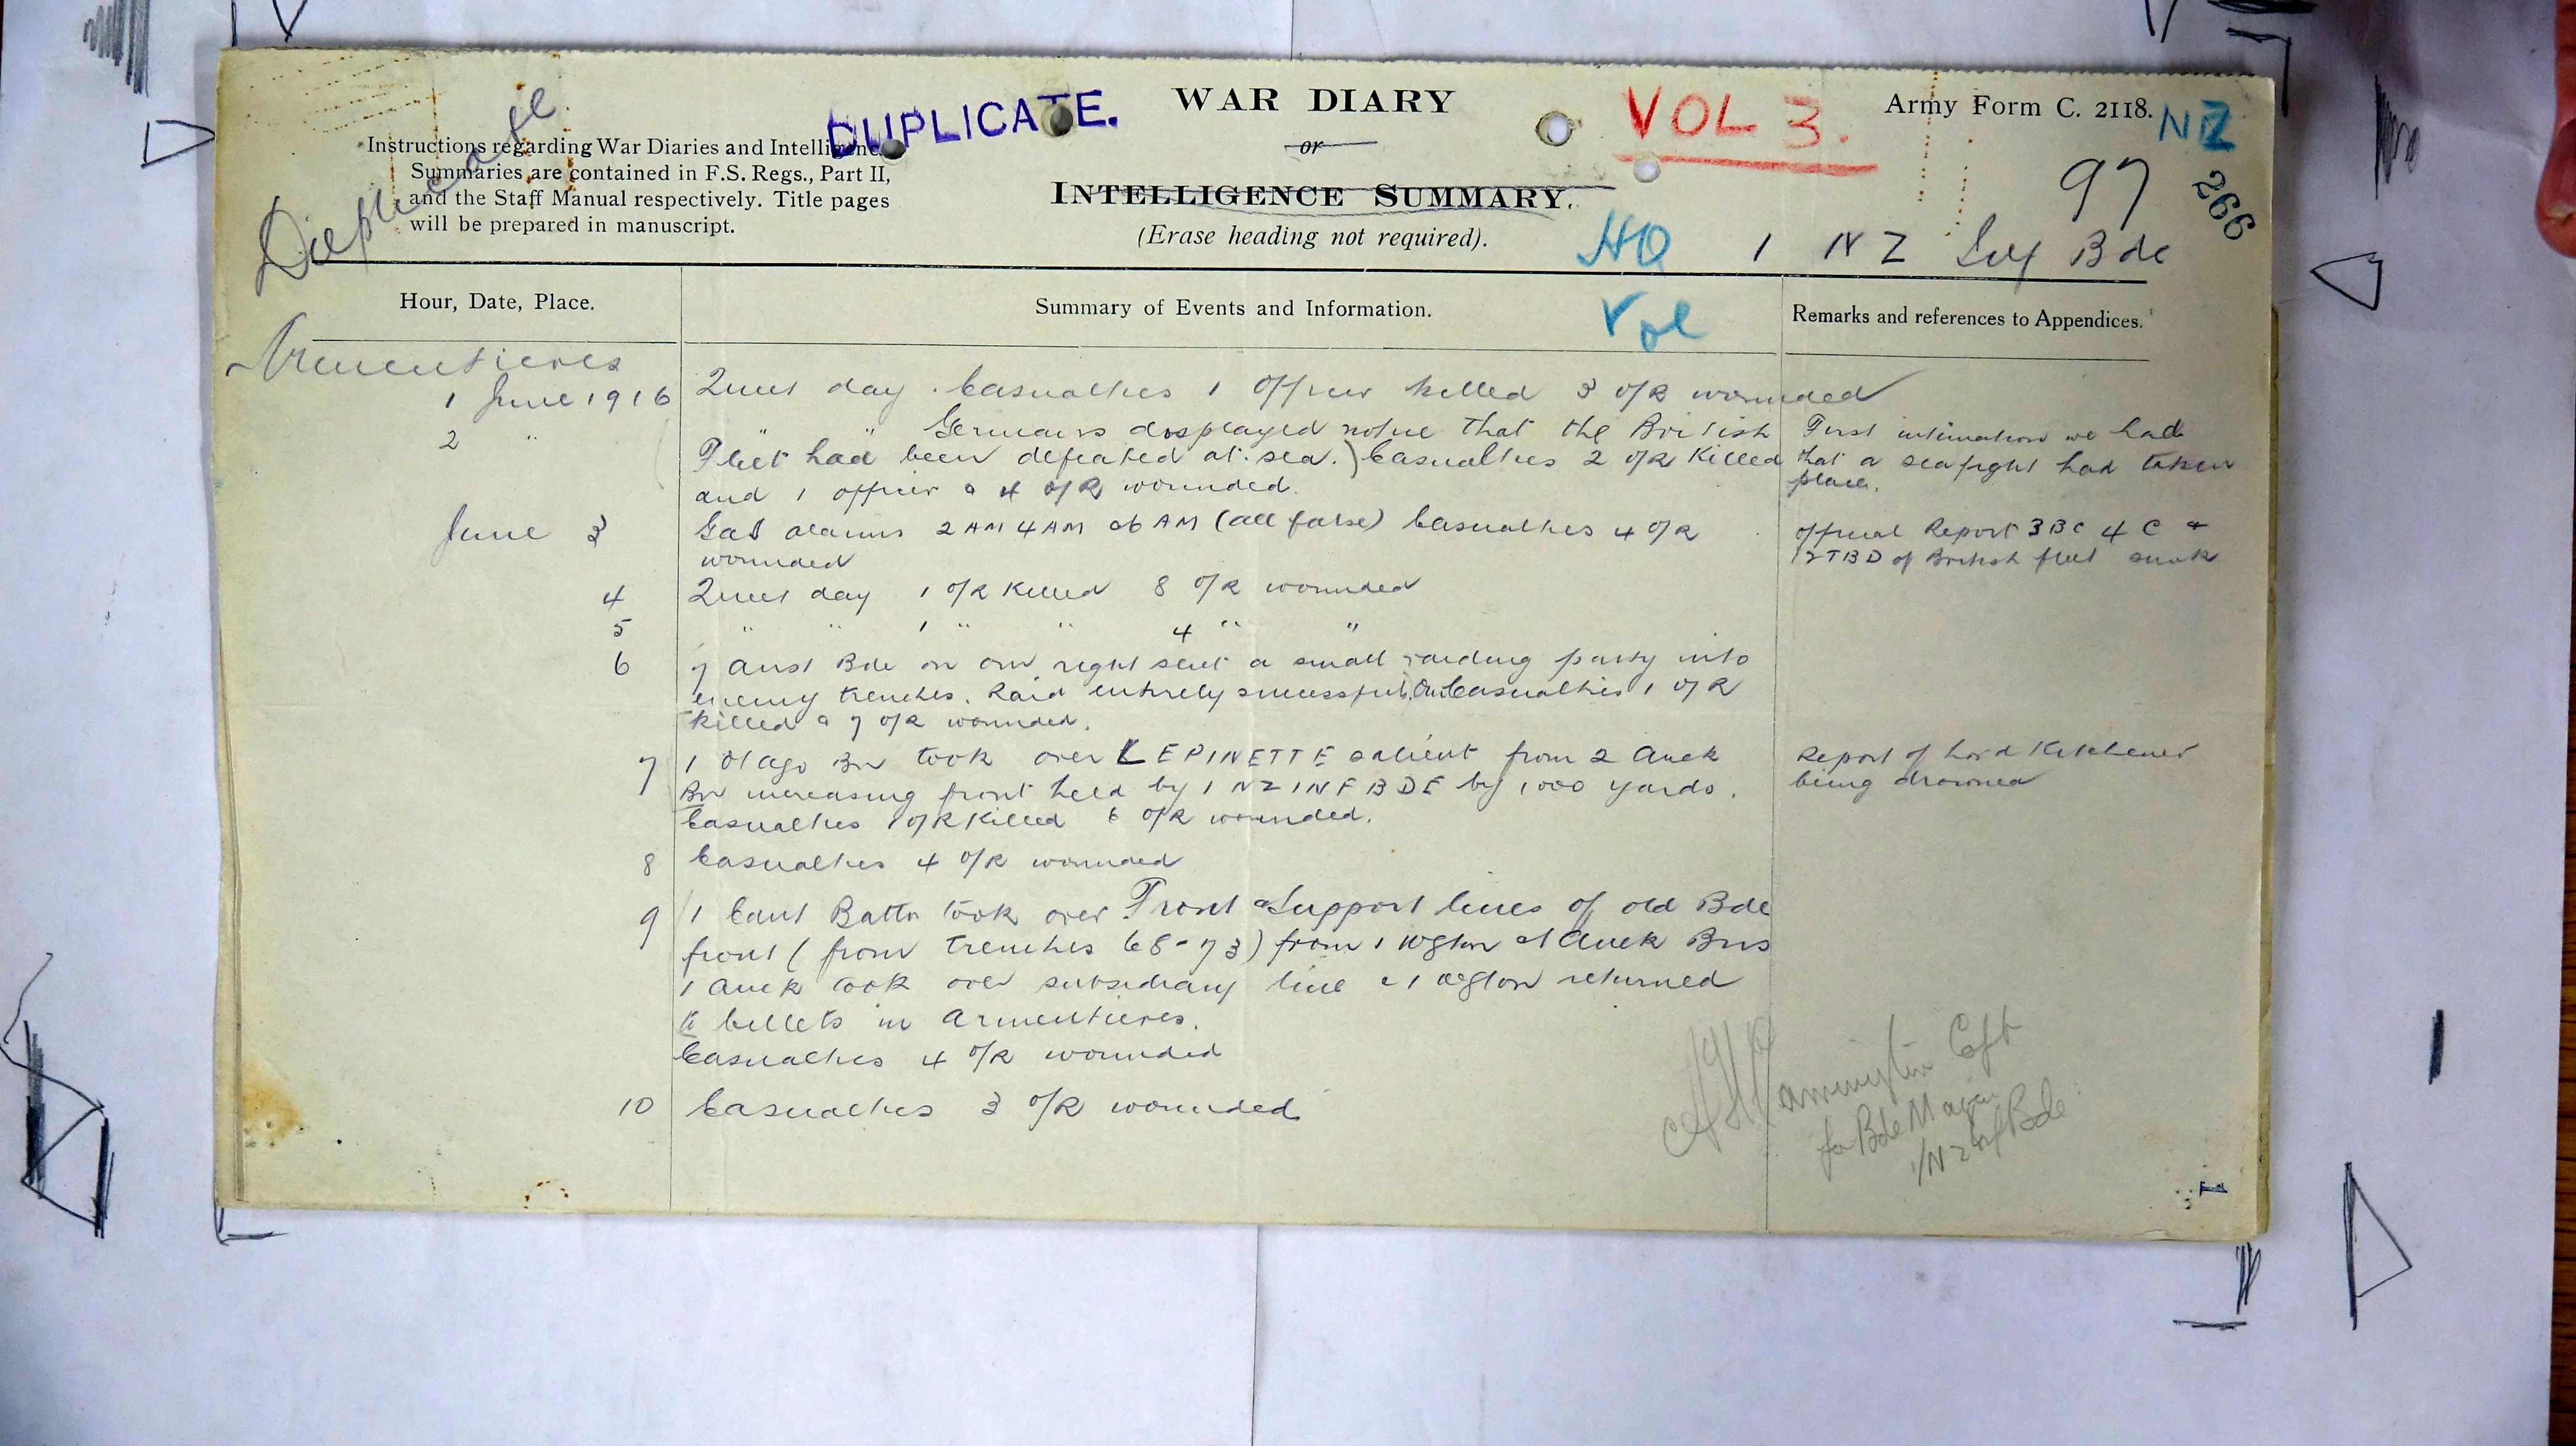 DUPLICATE.
WAR DIARY
or
INTELLIGENCE SUMMARY.
(Erase heading not required).
VOL 3.
Army Form C. 2118.
NZ
97
266
Duplicate
Instructions regarding War Diaries and Intelligence
Summaries are contained in F.S. Regs., Part II,
and the Staff Manual respectively. Title pages
will be prepared in manuscript.
HQ 1 NZ Inf Bde
Vol
Hour, Date, Place. Summary of Events and Information. Remarks and references to Appendices.
Armentieres
1 June 1916 Quiet day. Casualties 1 Officer killed 3 O/R wounded
2 " " " Germans displayed notice that the British First intimation we had
Fleet had been defeated at sea.) Casualties 2 O/R Killed that a seafight had taken
and 1 officer & 4 O/R wounded. place.
June 3 Gas alarms 2 AM 4 AM & 6 AM (all false) Casualties 4 O/R Official Report 3 BC 4 C &
wounded 12 TBD of British fleet sunk
4 Quiet day 1 O/R Killed 8 O/R wounded
5 " " 1 " " 4 " "
6 7 Aust Bde on our right sent a small raiding party into
enemy trenches. Raid entirely successful. Our Casualties 1 O/R
killed & 7 O/R wounded.
7 1 Otago Bn took over LEPINETTE salient from 2 Auck Report of Lord Kitchener
Bn increasing front held by 1 NZ INF BDE by 1,000 yards. being drowned
Casualties 1 O/R Killed 6 O/R wounded.
8 Casualties 4 O/R wounded
9 1 Cant Battn took over Front & Support lines of old Bde
front (from trenches 68-73) from 1 Wgton & 1 Auck Bns
1 Auck took over subsidiary line & 1 Wgton returned
to billets in Armentieres.
Casualties 4 O/R wounded
10 Casualties 3 O/R wounded
Capt
for Bde Major
1/NZ Inf Bde
1